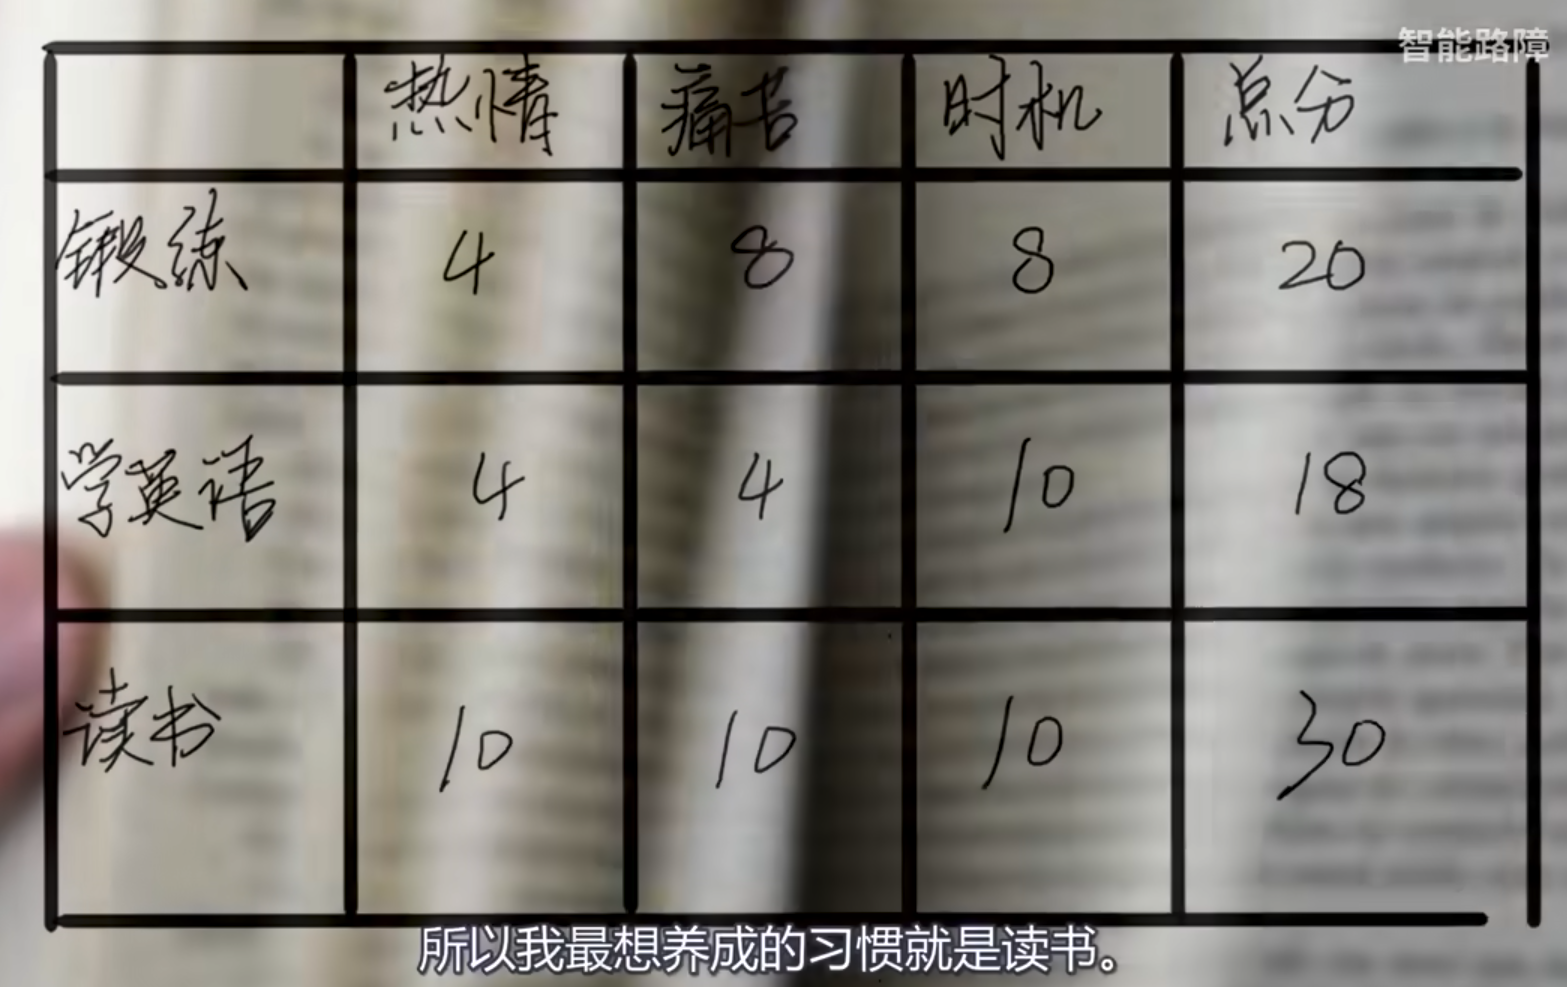 智能路障
热情 痛苦 时机 总分
锻练 4 8 8 20
学英语 4 4 10 18
读书 10 10 10 30
所以我最想养成的习惯就是读书。